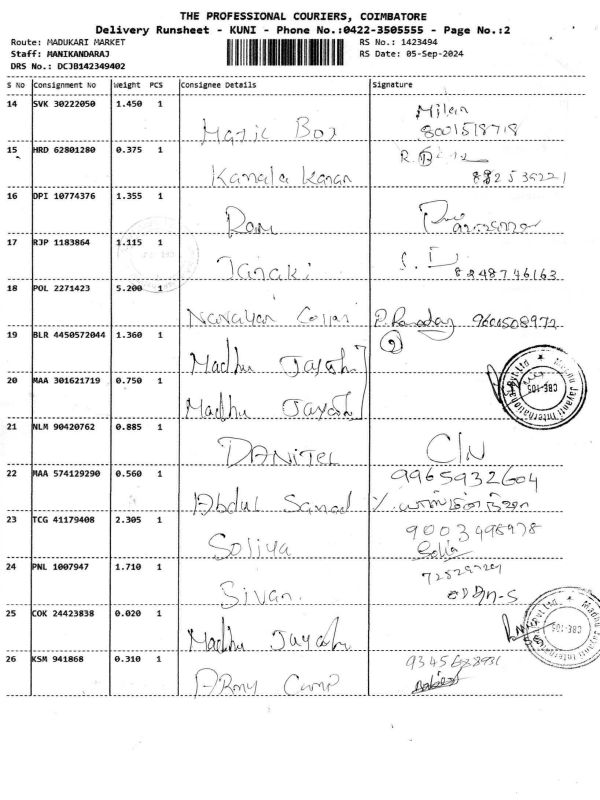 THE PROFESSIONAL COURIERS, COIMBATORE
Delivery Runsheet - KUNI - Phone No.:0422-3505555 - Page No.:2
Route: MADUKARI MARKET RS No.: 1423494
Staff: MANIKANDARAJ RS Date: 05-Sep-2024
DRS No.: DCJB142349402
S No Consignment No Weight PCS Consignee Details Signature
14 SVK 30222050 1.450 1 Magic Box Milan
8001518718
15 HRD 62801280 0.375 1 Kamala Kanan R.
16 DPI 10774376 1.355 1 Ram
17 RJP 1183864 1.115 1 Janaki S.
8248746163
18 POL 2271423 5.200 1 Narayan 9600508972
19 BLR 4450572044 1.360 1 Madhu Jayashi
20 MAA 301621719 0.750 1 Madhu Jayashi
Madhu Jayanti International Pvt Ltd
CBE-105
21 NLM 90420762 0.885 1 DANITEL C/N
22 MAA 574129290 0.560 1 Abdul Samad 9965932604
23 TCG 41179408 2.305 1 Soliya 9003498978
24 PNL 1007947 1.710 1 Sivan
25 COK 24423838 0.020 1 Madhu Jayashi
CBE-105
26 KSM 941868 0.310 1 ARmy Camp